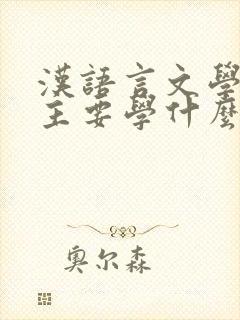 漢語言文學
主要學什麼
奧尔森